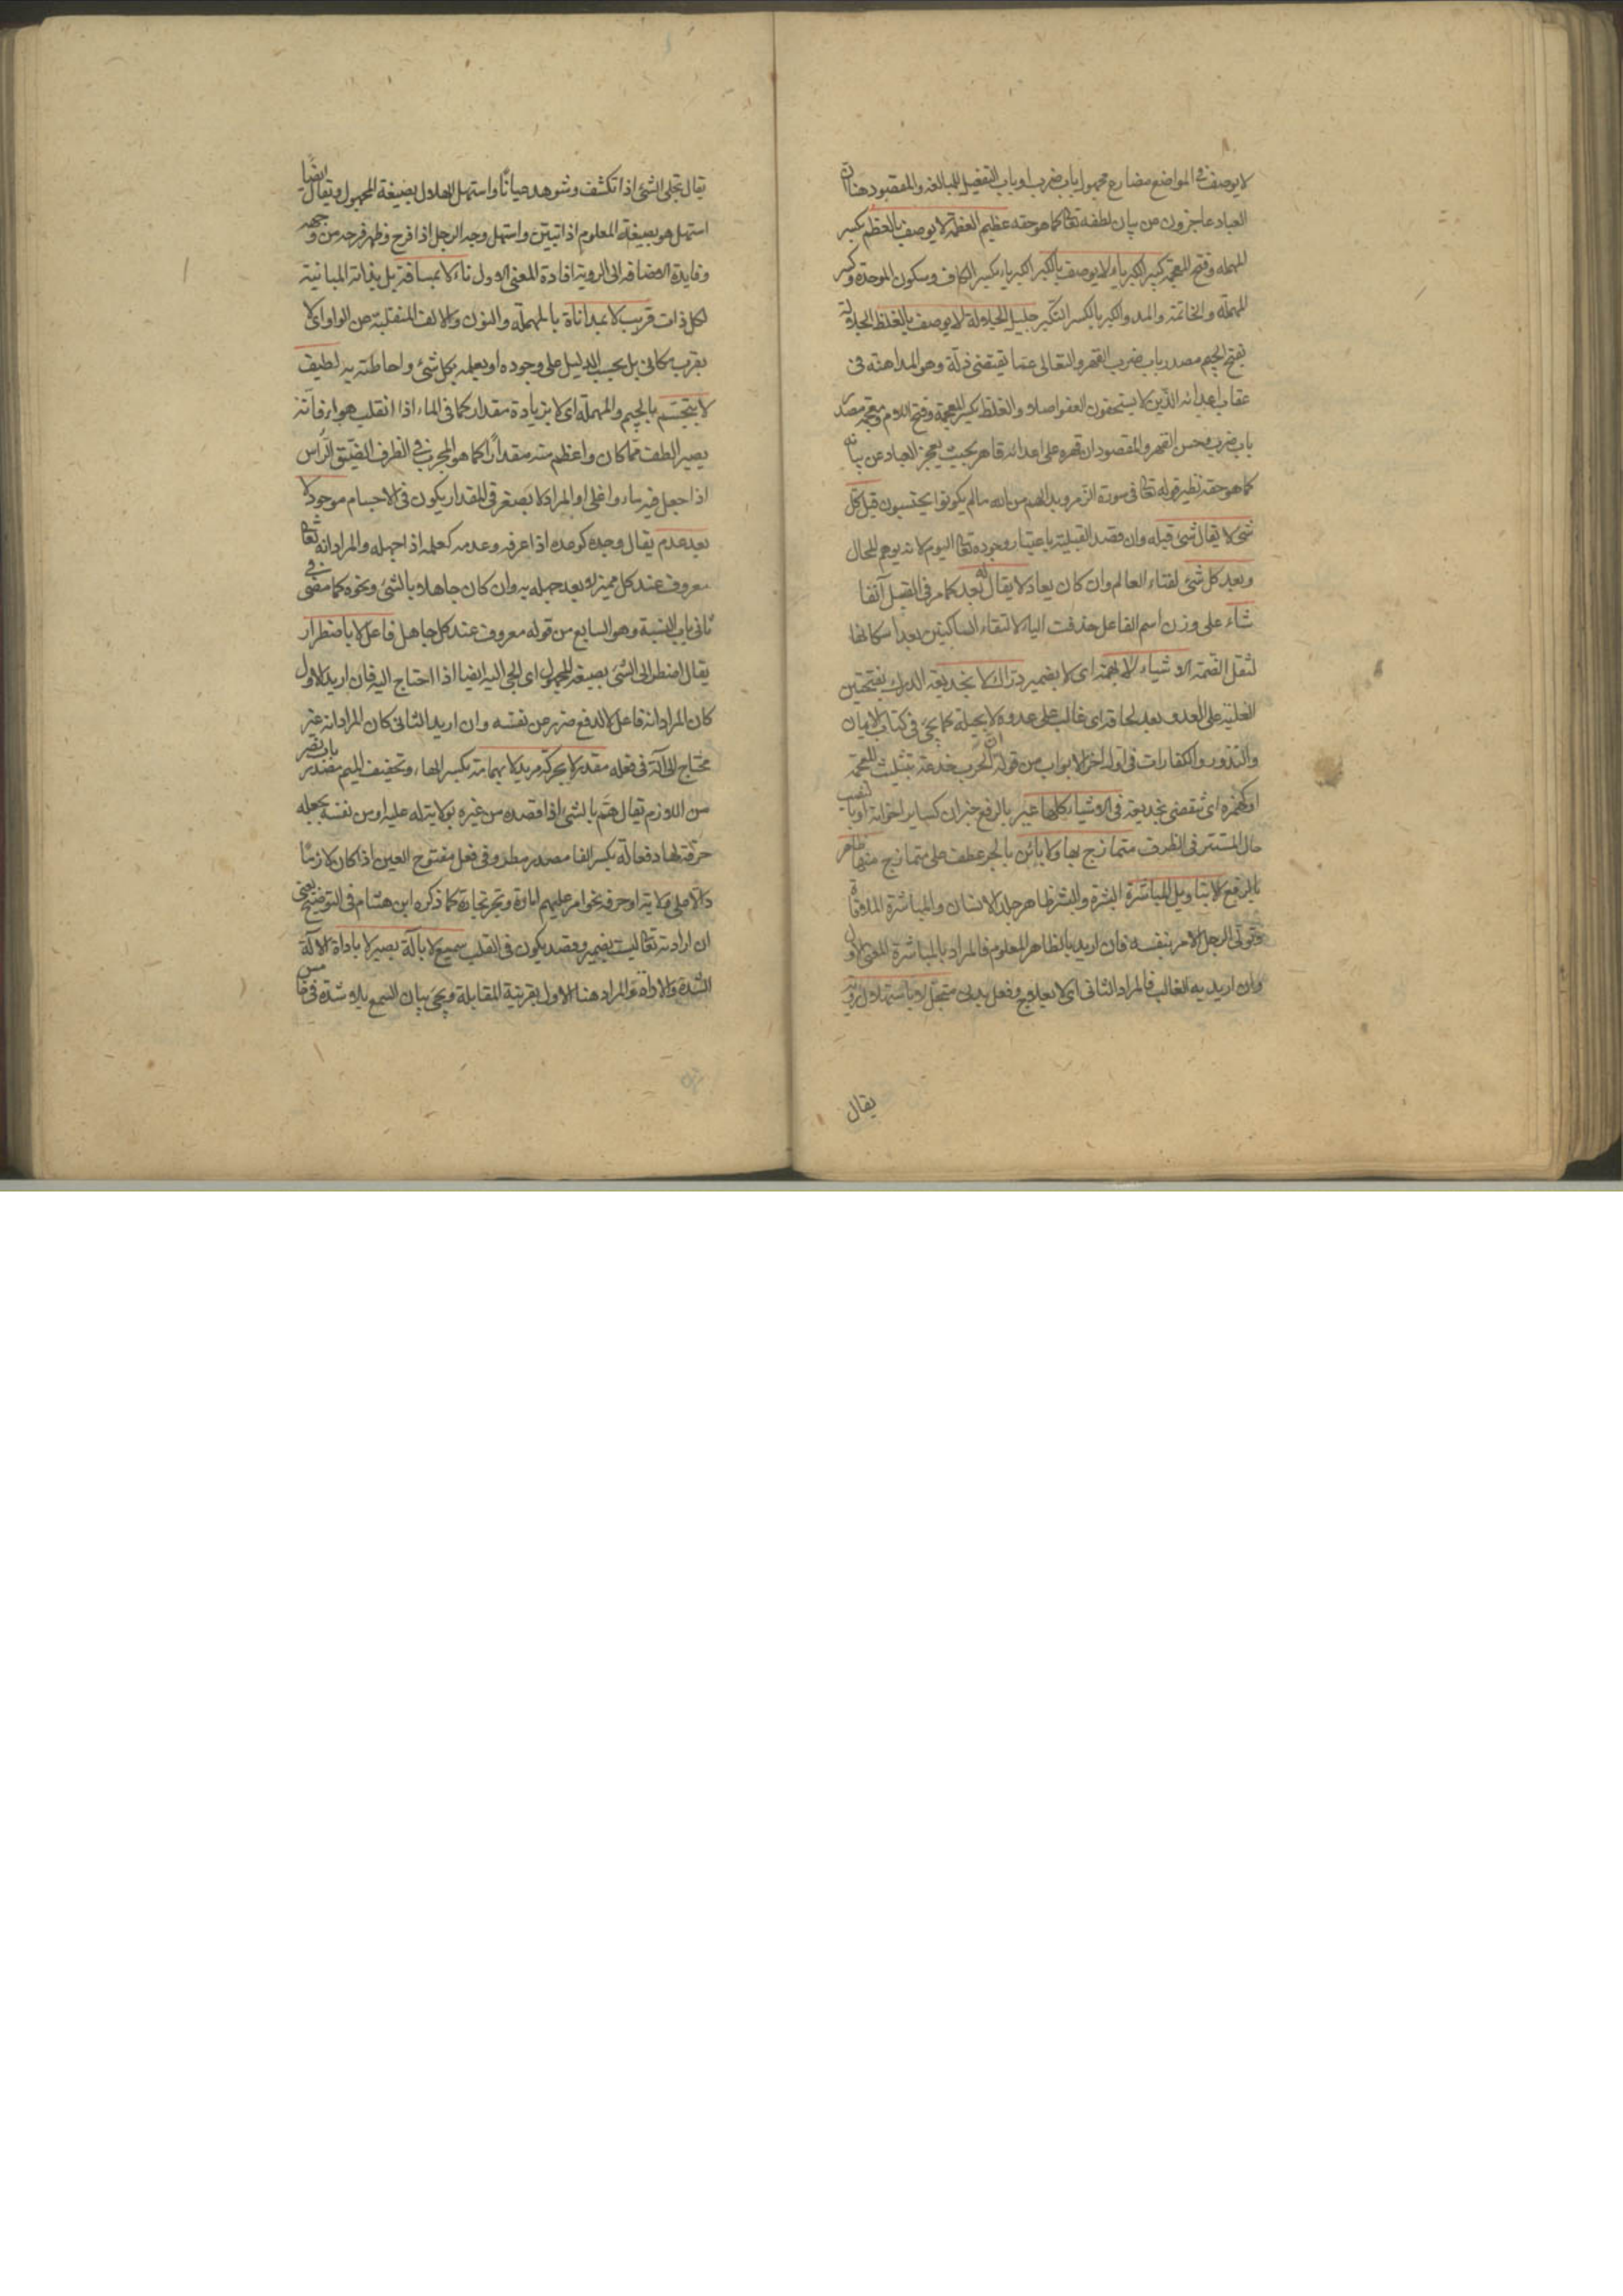 لا يوصف فى المواضع مضارع مجهول باب ضرب او باب التفعيل للمبالغة والمقصود هنا ان
العباد عاجزون عن بيان لطفه تعالى كما هو حقه عظيم العظمة لا يوصف بالعظم بكسر
المهملة وفتح المعجمة كبير الكبرياء لا يوصف بالكبر الكبرياء بكسر الكاف وسكون الموحدة وكسر
المهملة والخاتمة والمد والكبر بالكسر التكبر جليل الجلالة لا يوصف بالغلظ الجلالة
بفتح الجيم مصدر باب ضرب القهر والتعالى عما يقتضى ذلة وهو المداهنة فى
عقاب اعدائه الذين لا يستحقون العفو اصلا والغلظ بكسر المعجمة وفتح اللام ومعجمة مصدر
باب ضرب وحسن القهر والمقصود ان قهره على اعدائه قاهر بحيث يعجز العباد عن بيانه
كما هو حقه نظير قوله تعالى فى سورة الزمر وبدا لهم من الله ما لم يكونوا يحتسبون قبل كل
شئ لا يقال شئ قبله وان قصد القبلية باعتبار وجوده تعالى اليوم لانه يوهم المحال
وبعد كل شئ لفناء العالم وان كان يعاد لا يقال له بعد كما مر فى القبل آنفا
شاء على وزن اسم الفاعل حذفت الياء لالتقاء الساكنين بعد اسكانها
لثقل الضمة الاشياء لا بهمة اى لا بضمير دراك لا بخديعة الدرك بفتحتين
الغلبة على العدو بعد لحاقه اى غالب على عدوه لا بحيلة كما يجئ فى كتاب الايمان
والنذور والكفارات فى اول آخر الابواب من قوله ان الحرب خدعة بتثليث المعجمة
او كهمزة اى تنقضى بخديعة فى الاشياء كلها غير بالرفع خبر ان كساير اخواته او بالنصب
حال المستتر فى الظرف متمازج بها ولا بائن بالجر عطف على متمازج منها ظاهر
بالرفع لا بتاويل المباشرة البشرة والبشر ظاهر جلد الانسان والمباشرة الملاقاة
وتولى الرجل الامر بنفسه فان اريد بالظاهر المعلوم فالمراد بالمباشرة المعنى الاول
وان اريد به الغالب فالمراد الثانى اى لا بعلاج وفعل بدنى متجل لا باستهلال رؤية
يقال
يقال تجلى الشئ اذا تكشف وشوهد عيانا واستهل الهلال بصيغة المجهول ويقال ايضا
استهل هو بصيغة المعلوم اذا تبين واستهل وجه الرجل اذا فرح وظهر فرحه من وجهه
وفايدة الاضافة الى الرؤية افادة المعنى الاول ناء لا بمسافة بل بذاته المباينة
لكل ذات قريب لا بمداناة بالمهملة والنون والالف المنقلبة عن الواو اى لا
بقرب مكانى بل بحسب الدليل على وجوده او بعلمه بكل شئ واحاطته به لطيف
لا بتجسم بالجيم والمهملة اى لا بزيادة مقدار كما فى الماء اذا انقلب هواء فانه
يصير الطف مما كان واعظم منه مقدارا كما هو المجرب فى الظرف الضيق الراس
اذا جعل فيه ماء واغلى او المراد لا بصغر فى المقدار يكون فى الاجسام موجود لا
بعد عدم يقال وجده كوعده اذا عرفه وعدمه كعلمه اذا جهله والمراد انه تعالى
معروف عند كل مميز لا بعد جهله به وان كان جاهلا بالشئ ونحوه كما مضى فى
ثانى باب النسبة وهو السابع من قوله معروف عند كل جاهل فاعل لا باضطرار
يقال اضطر الى الشئ بصيغة المجهول اى الجى اليه ايضا اذا احتاج اليه فان اريد الاول
كان المراد انه فاعل لا لدفع ضرر عن نفسه وان اريد الثانى كان المراد انه غير
محتاج الى آلة فى فعله مقدر لا بحركة مريد لا بهمامة بكسر الهاء وتخفيف الميم مصدر باب نصر
من اللازم يقال هم بالشئ اذا قصده من غيره بولايته له عليه او من نفسه بجعله
حرفة لها وفعالة بكسر الفا مصدر مطرد فى فعل مفتوح العين اذا كان لازما
دالا على ولاية او حرفة نحو امر عليهم امارة وتجر تجارة كما ذكره ابن هشام فى التوضيح يعنى
ان ارادته تعالى ليست بضمير وقصد يكون فى القلب سميع لا بآلة بصير لا باداة الآلة
الشدة والاداة والمراد هنا الاول بقرينة المقابلة ويجئ بيان السمع بلا شدة فى